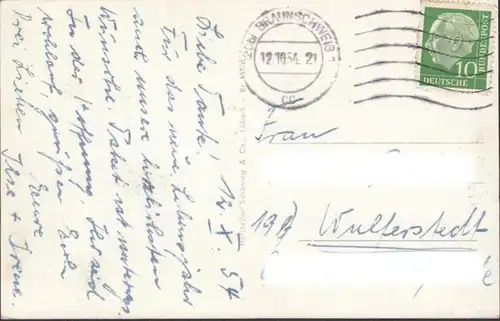 12. X. 54
Liebe Tante!
Für das neue Lebensjahr
auch unsere herzlichsten
Wünsche. Paket ist unterwegs.
In der Hoffnung, Ihr seid
wohlauf, grüßen Euch
drei Lieben Eure
Ilse + Irene.
(20b) BRAUNSCHWEIG 1
12.10.54. 21
cc
DEUTSCHE
BUNDESPOST
10
Schöning & Co., Lübeck
Frau
19b Wulferstedt